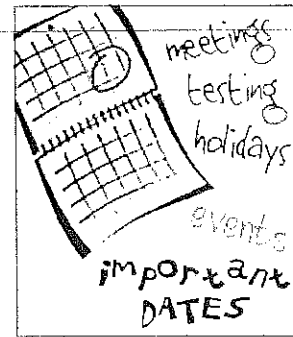 meetings
testing
holidays
events
important
DATES